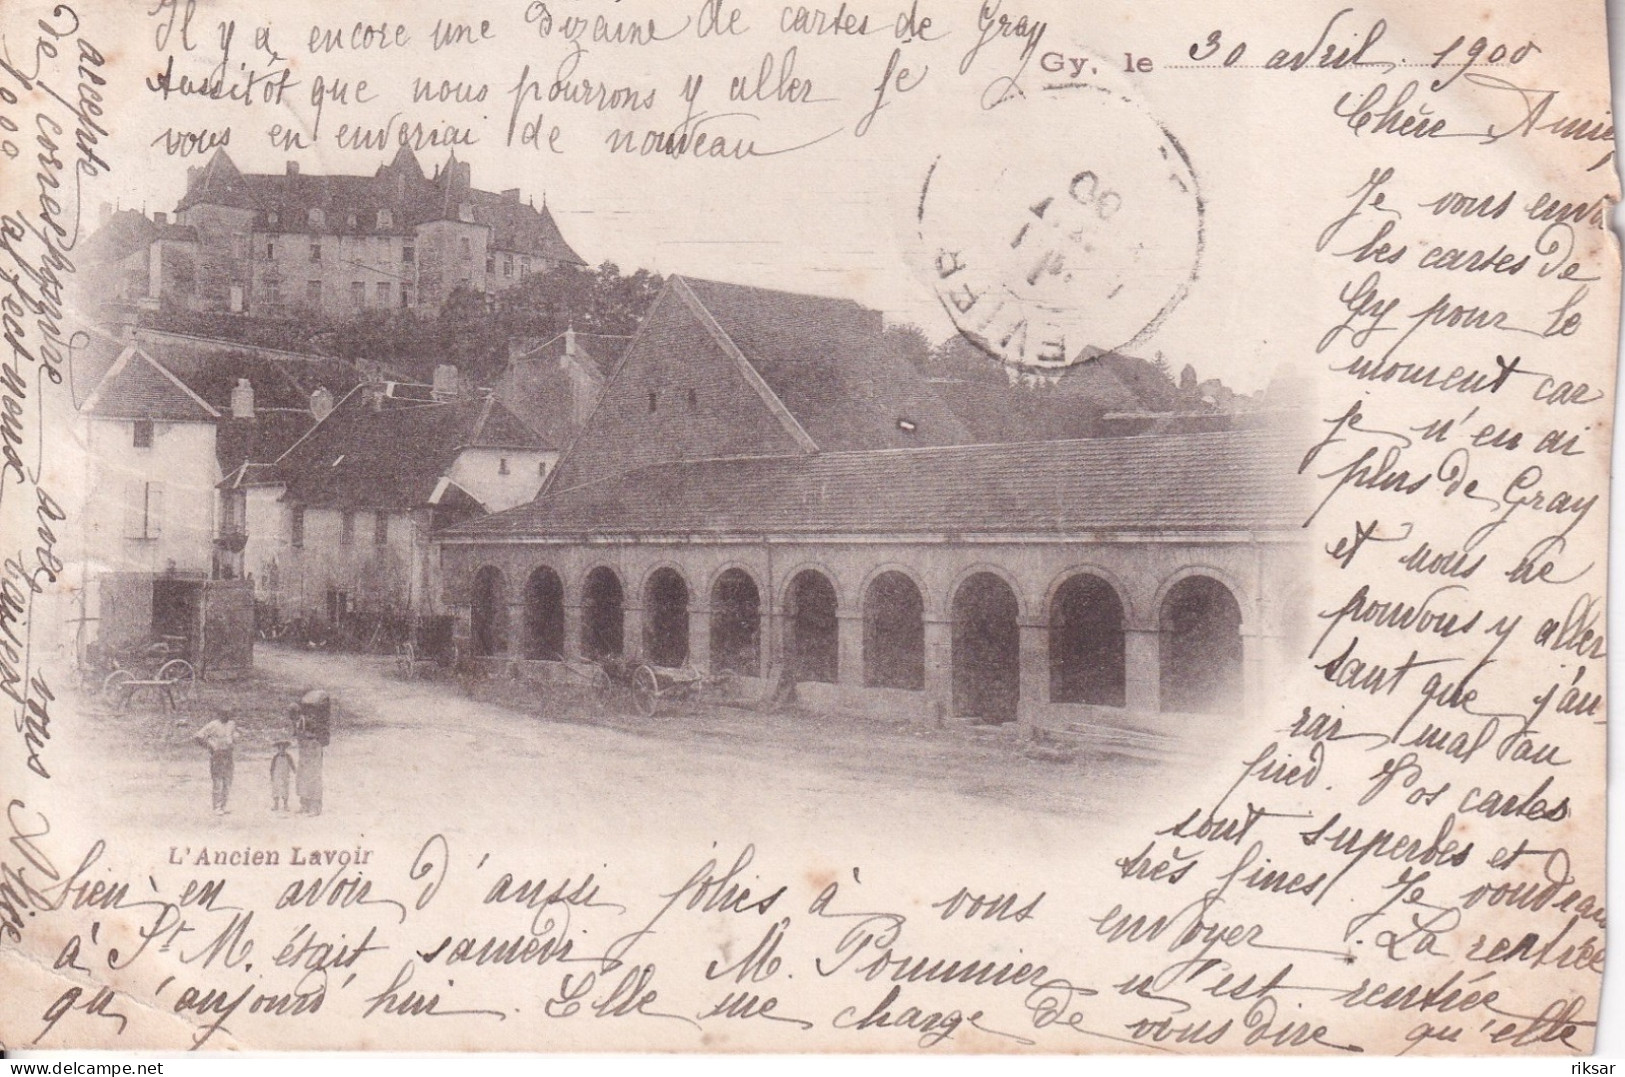 Gy, le 30 avril 1900
Chère Amie,
Je vous envoi
les cartes de
Gy pour le
moment car
je n'en ai
plus de Gray
et nous ne
pouvons y aller
tant que j'au-
rai mal au
pied. Vos cartes
sont superbes et
très fines. Je voudrais
bien en avoir d'aussi jolies à vous envoyer. La rentrée
à St M. était samedi, M. Pommier n'est rentrée
qu'aujourd'hui. Elle me charge de vous dire qu'elle
accepte avec vous
de correspondre
Alice
Il y a encore une dizaine de cartes de Gray
Aussitôt que nous pourrons y aller je
vous en enverrai de nouveau
EVIER
00
L'Ancien Lavoir
delcampe.net
riksar